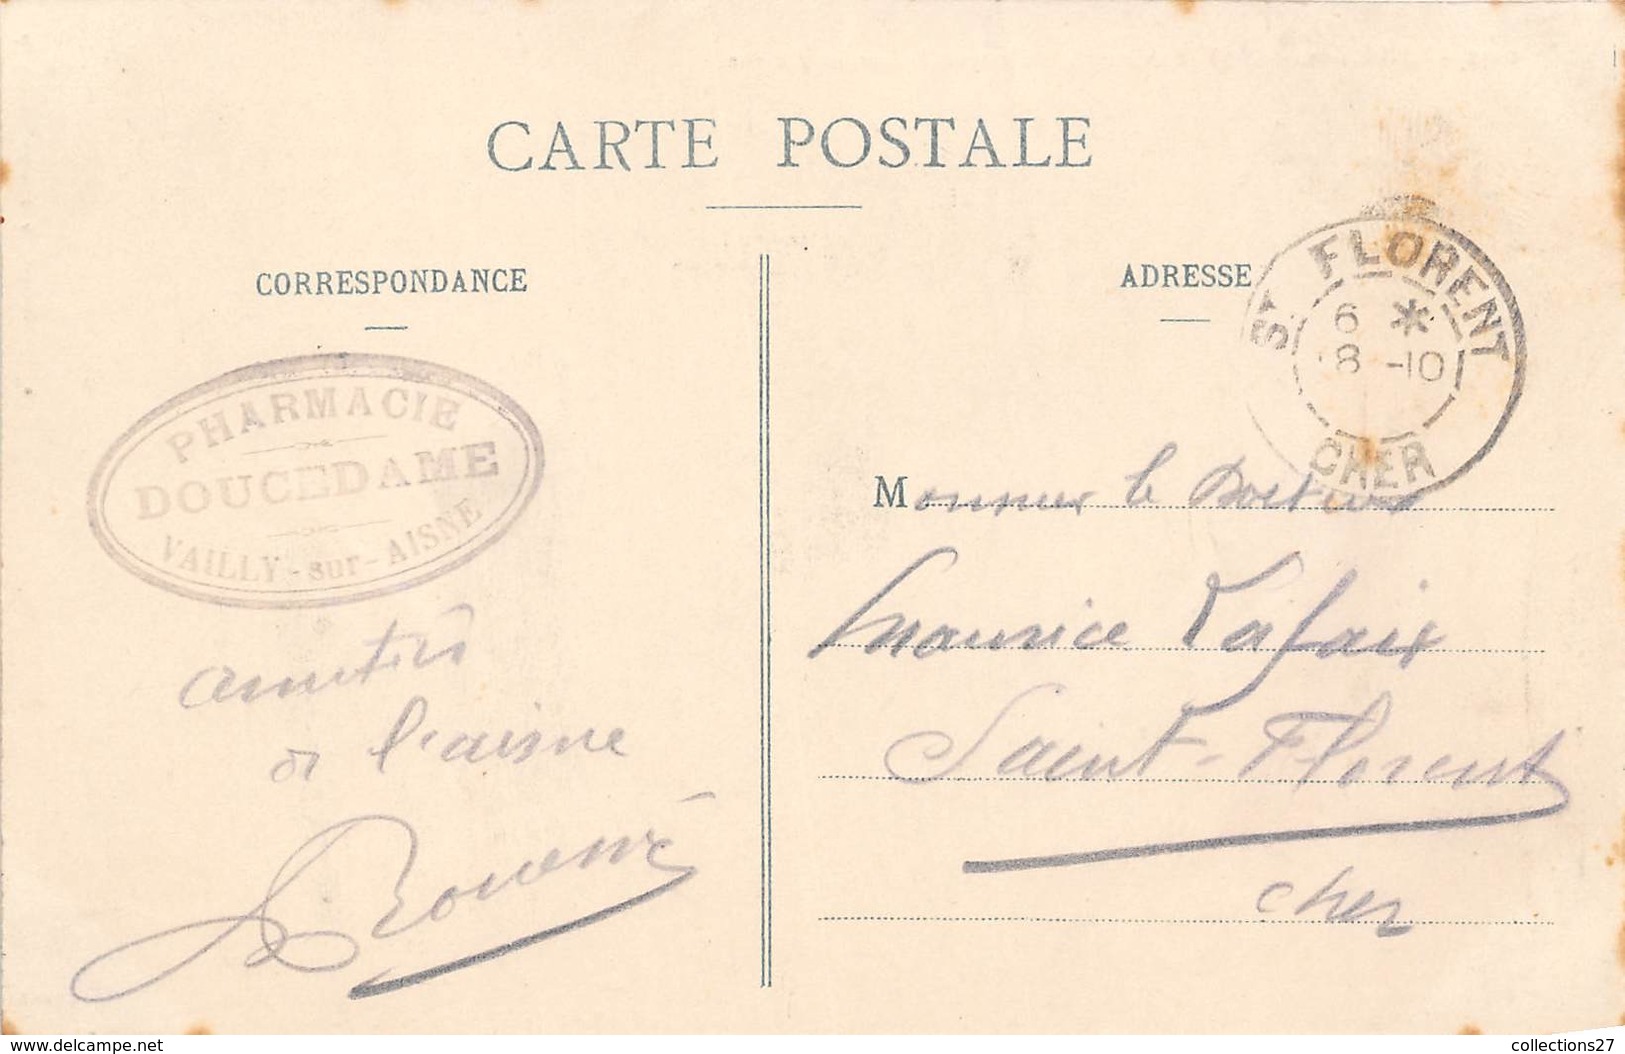 CARTE POSTALE
CORRESPONDANCE
PHARMACIE
DOUCEDAME
VAILLY-sur-AISNE
amitiés
l'aisne
ADRESSE
ST FLORENT
6 *
8 -10
CHER
Monsieur le Docteur
Maurice Lafaix
Saint-Florent
Cher
delcampe.net
collections27